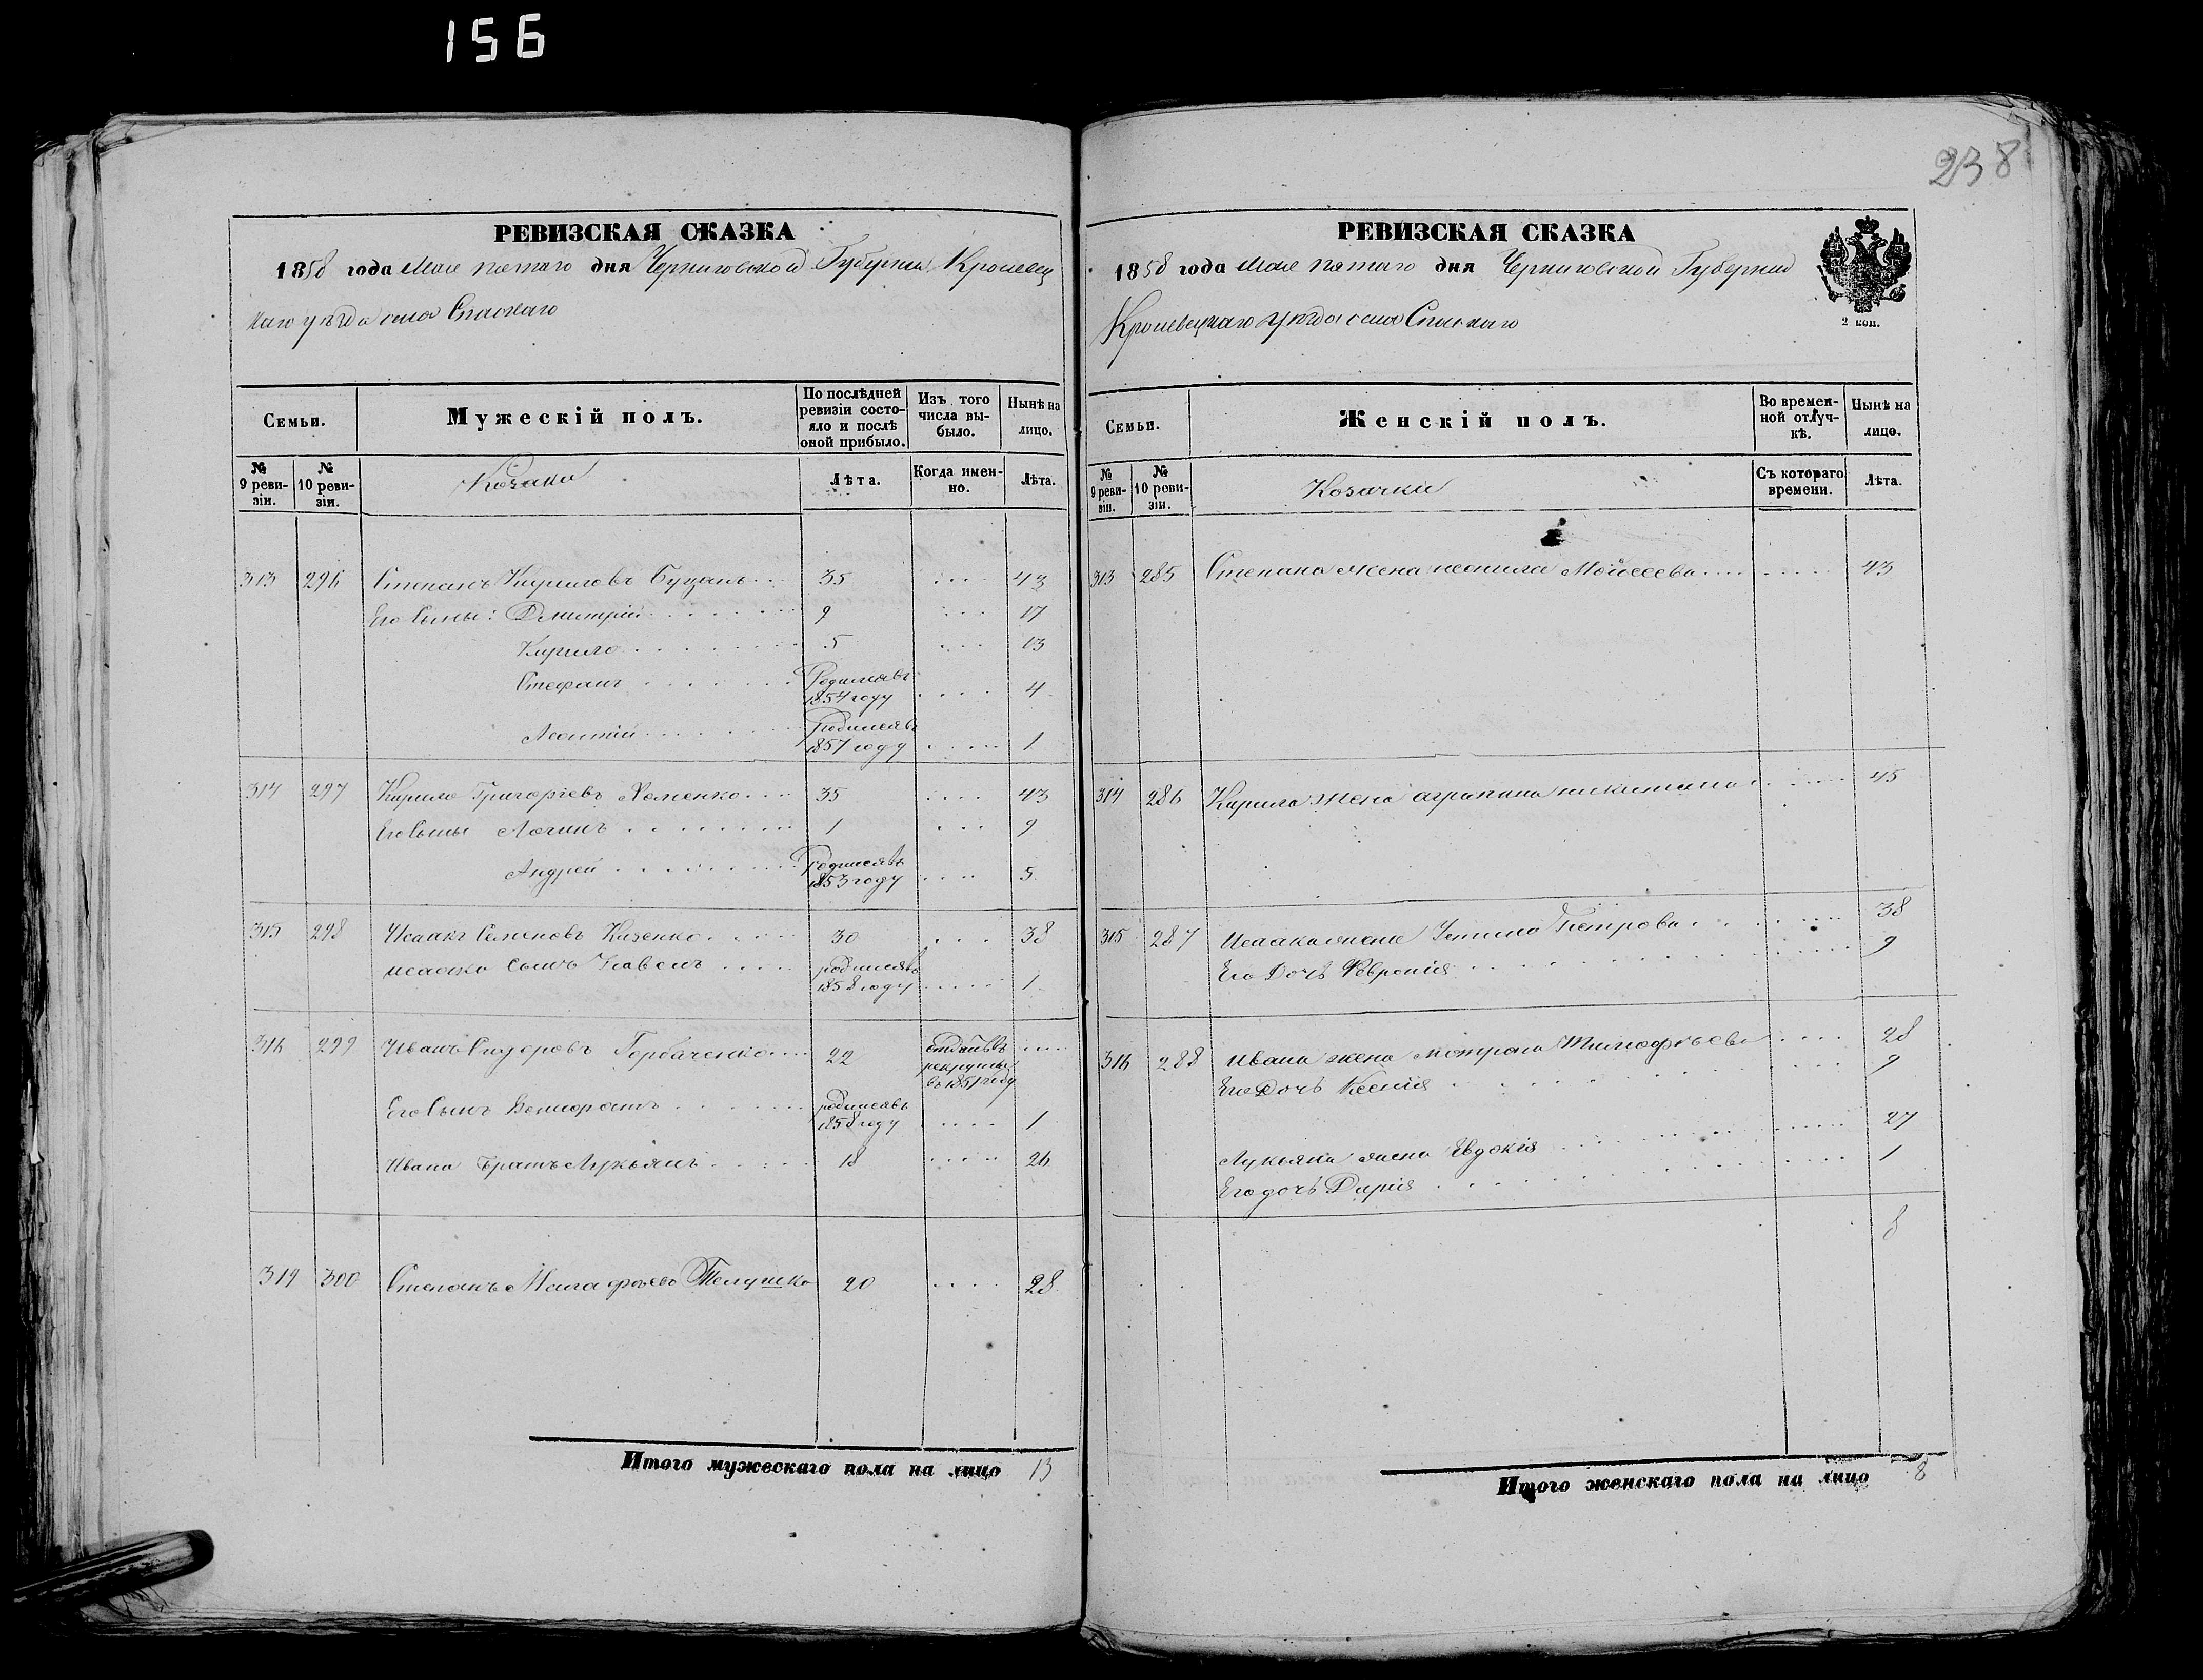 156
238
РЕВИЗСКАЯ СКАЗКА
1858 года Мая пятаго дня Черниговской Губерніи Кролевец
каго уѣзда села Спаскаго
Семьи. Мужескій полъ. По послѣдней ревизіи состояло и послѣ оной прибыло. Изъ того числа выбыло. Нынѣ на лицо.
№ 9 ревизіи. № 10 ревизіи. Козаки Лѣта. Когда именно. Лѣта.
313 296 Степанъ Кириловъ 35 43
Его Сыны: Димитрій 9 17
Кирило 5 13
Стефанъ Родился въ 1854 году 4
Леонтій Родился въ 1857 году 1
314 297 Кирило Григоріевъ Хоменко 35 43
Его Сыны Логинъ 1 9
Андрей Родился въ 1853 году 5
315 298 Исаакъ Семеновъ 30 38
Исаака Сынъ Павелъ родился въ 1858 году 1
316 299 Иванъ Сидоровъ Горбаченко 22 отданъ въ рекруты въ 1851 году
Его Сынъ родился въ 1858 году 1
Ивана братъ Лукьянъ 18 26
319 300 Степанъ 20 28
Итого мужескаго пола на лицо 13
РЕВИЗСКАЯ СКАЗКА
1858 года Мая пятаго дня Черниговской Губерніи
Кролевецкаго уѣзда села Спаскаго
2 коп.
Семьи. Женскій полъ. Во временной отлучкѣ. Нынѣ на лицо.
№ 9 ревизіи. № 10 ревизіи. Козачки Съ котораго времени. Лѣта.
313 285 Степана жена неонила Мойсеева 43
314 286 Кирила жена агрипина никитина 45
315 287 Исаака жена Петрова 38
Его Дочь Февронія 9
316 288 Ивана жена мотрона Тимофѣева 28
Его Дочь Ксенія 9
Лукьяна жена Евдокія 27
Его дочь Дарія 1
8
Итого женскаго пола на лицо 8